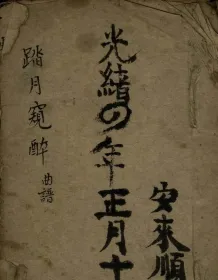 安來順
光緒四年正月十
踏月窺醉 曲譜